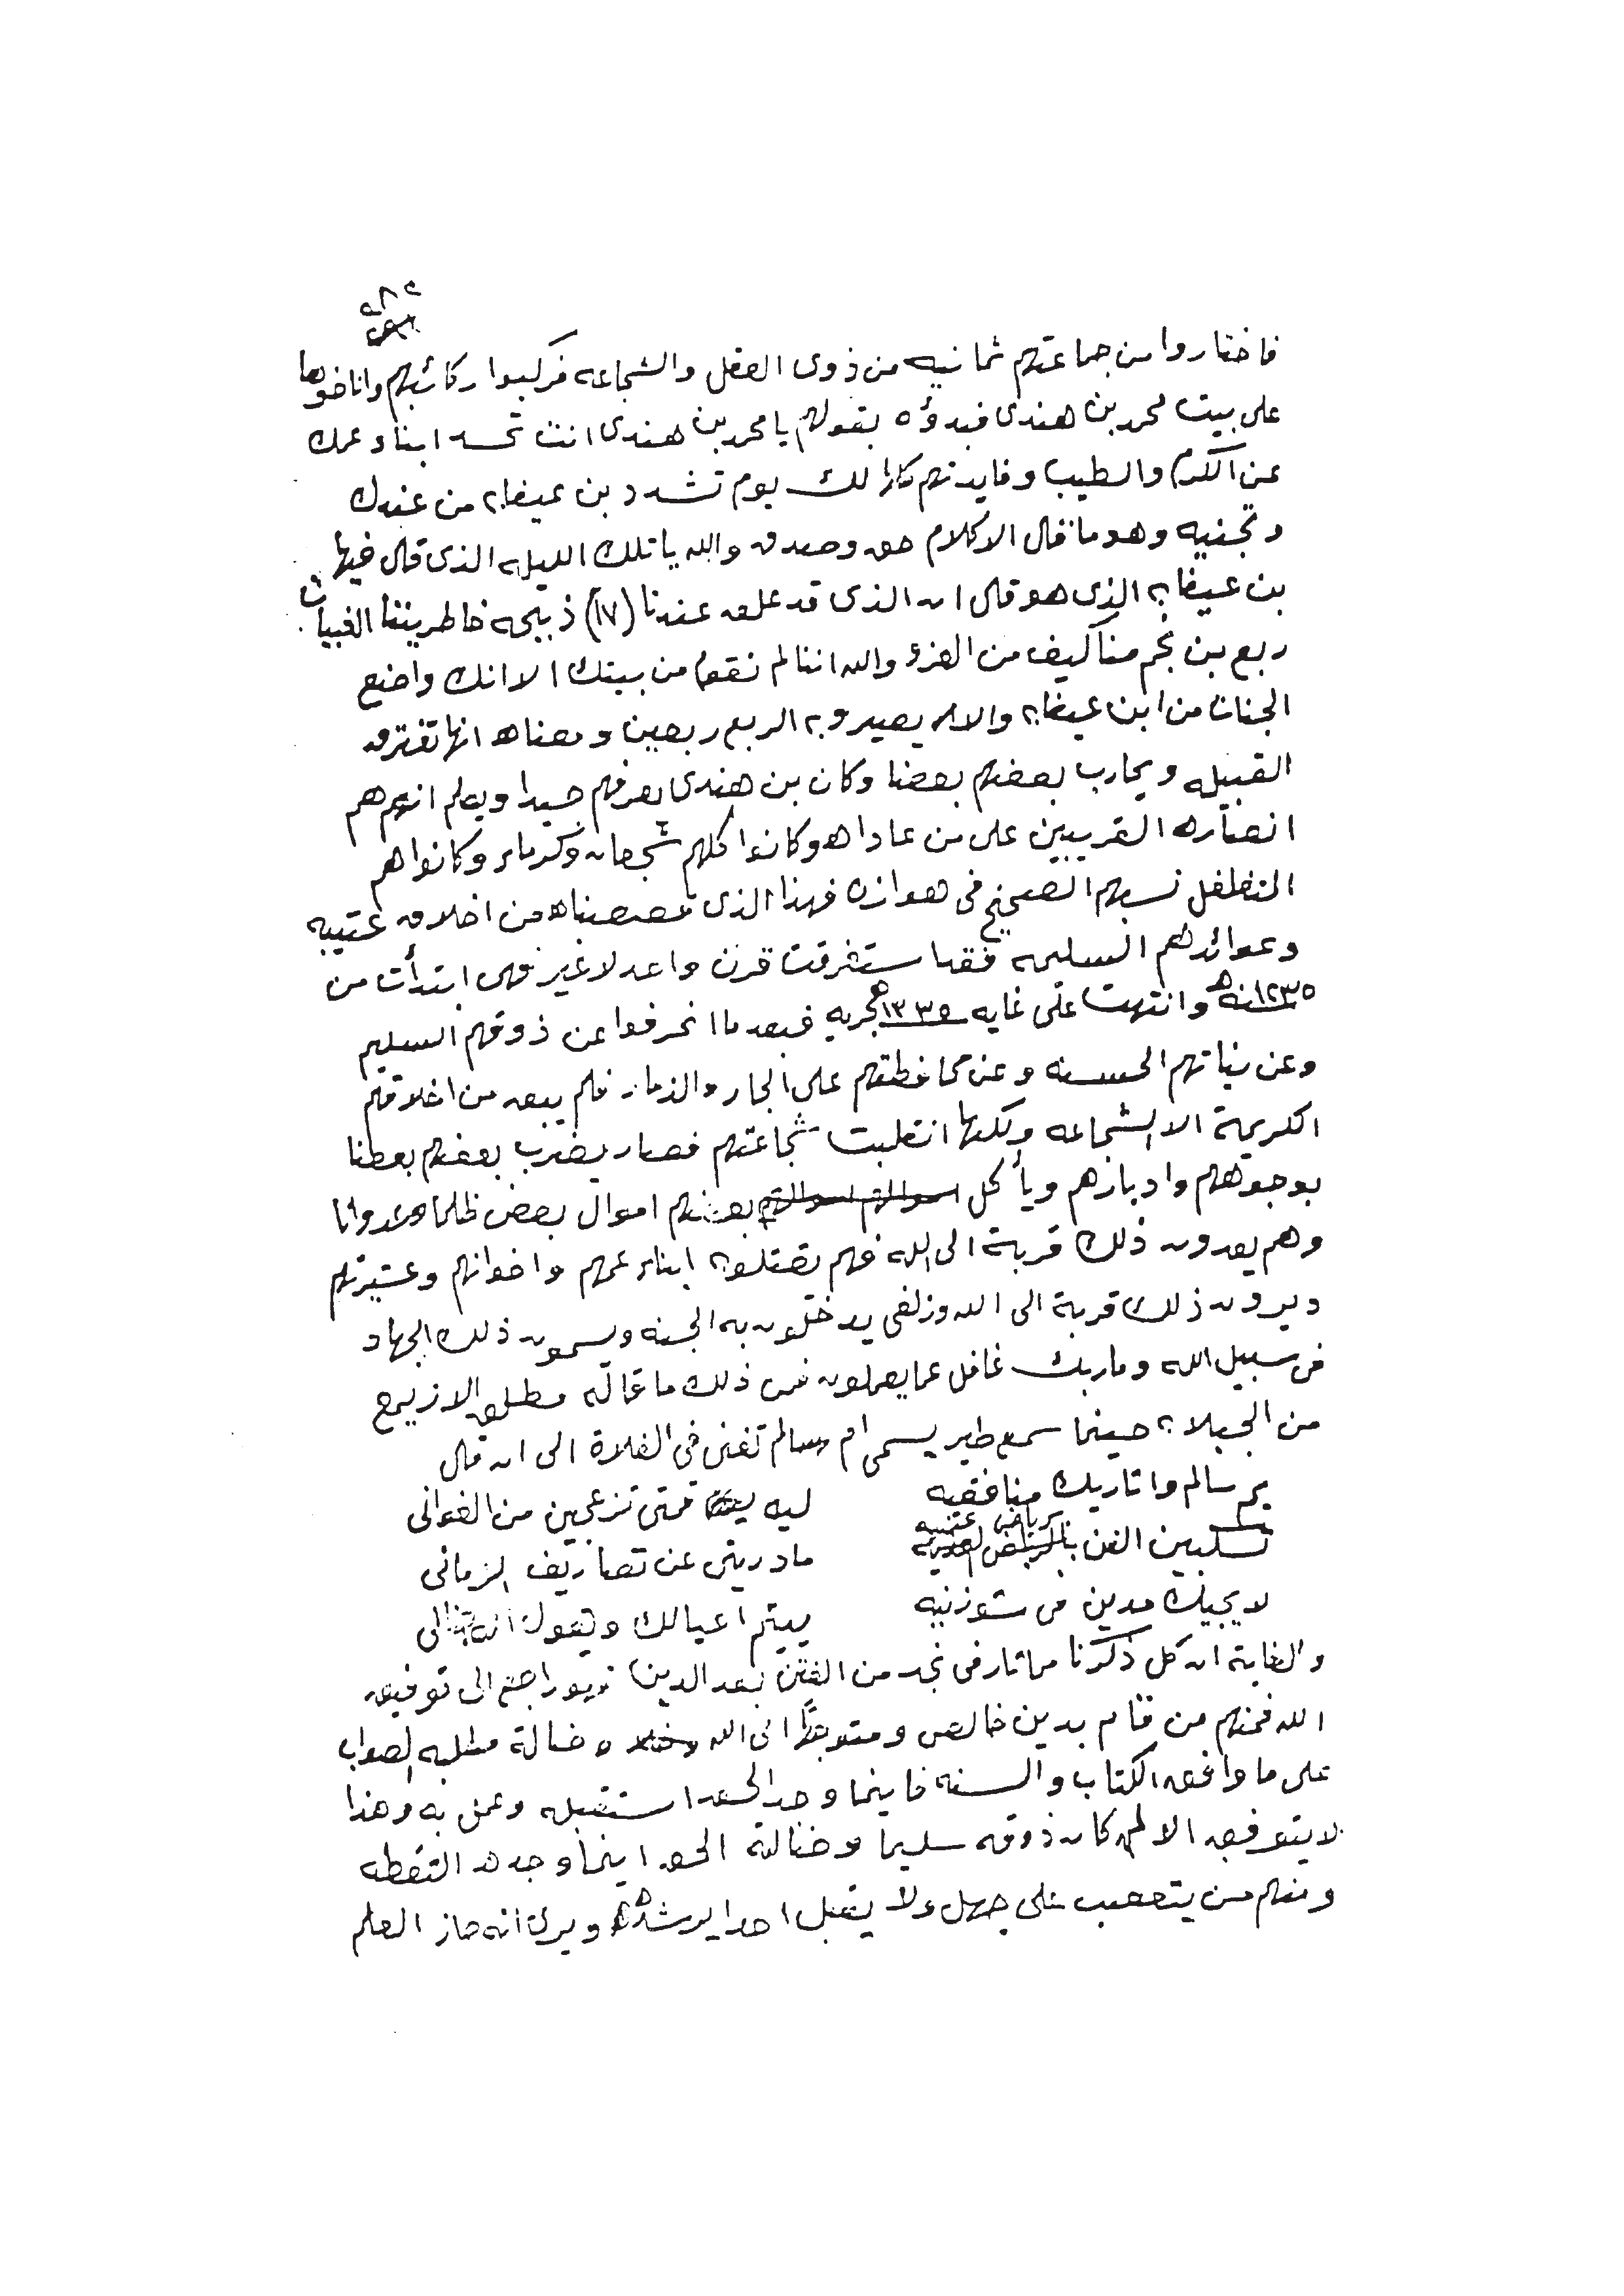 ٢٨٢
فاختاروا من جماعتهم ثمانيه من ذوى العقل والشجاعه فركبوا ركائبهم واناخوها
على بيت محمد بن هندى فبدؤه بقولهم يا محمد بن هندى انت تحسد ابناء عمك
عن الكرم والطيب وفايدتهم لك يوم تشدد بن عيفان من عندك
وتجنيه وهو ما قال الا كلام حق وصدق والله يا تلك الليله الذى قال فيها
بن عيفان الذى هو قال ان الذى قد علق عندنا (١٧) ذبيحه خاطريننا الغبيات
ربع بن نجم مناكيف من الغزو والله اننا لم نقوم من بيتك الا انك واضع
الجنات من ابن عيفان والا يصيرون الربع ربعين ومعناه انها تفترق
القبيله ويحارب بعضهم بعضا وكان بن هندى يعرفهم جيدا ويعلم انهم هم
انصاره القريبين على من عاداه وكانوا كلهم شجعان وكرماء وكانوا هم
نسبهم الصحيح فى هوازن فهذا الذى قصصناه من اخلاق عتيبه
وعوائدهم السليمه فقد استغرقت قرن واحد لا غير فهى ابتدأت من
١٢٣٥سنه ه وانتهت على غايه ١٣٣٥ هجريه فبعد ما انحرفوا عن ذوقهم السليم
وعن نياتهم الحسنه وعن محافظتهم على الجار والذمار فلم يبق من اخلاقهم
الكريمة الا الشجاعه ولكنها انقلبت شجاعتهم فصار يضرب بعضهم بعضا
بوجوههم وادبارهم ويأكل بعضهم اموال بعض ظلما وعدوانا
وهم يعدون ذلك قربة الى الله فهم يقتلون ابناء عمهم واخوانهم وعشيرتهم
ويرون ذلك قربة الى الله وزلفى يدخلون به الجنه ويسمون ذلك الجهاد
فى سبيل الله وما ربك غافل عما يعملون فمن ذلك ما قاله مطلق الازيمع
من الجبلان حينما سمع طير يسمى ام سالم تغنى فى الفلاة الى ان قال
يم سالم واثاريك منافقيه ليه متى تزعجين من الغوانى
تسلبين الفن برياض عتيبه ما دريتى عن تصاريف الزمانى
لا يجيك مدين فى شوزنيه ييتم اعيالك ويقول
والغاية ان كل ذكرنا مما ثار فى نجد من الفتن بعد الدين فهو راجع الى توفيق
الله فمنهم من قام بدين خالص ومتوجها الى الله ضالة مطلبه الصواب
على ما وافق الكتاب والسنه فاينما وجد الحق استقبله وعمل به وهذا
لا يتوفق الا لمن كان ذوقه سليما وضالته الحق اينما وجده التقطه
ومنهم من يتعصب على جهل ولا يقبل احدا يرشده ويرى انه حاز العلم